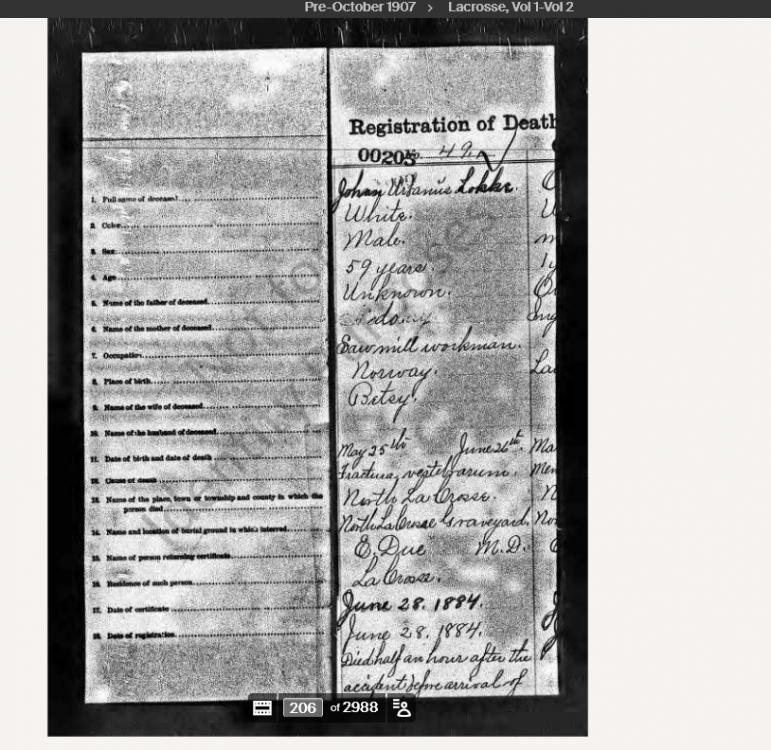 Pre-October 1907 > Lacrosse, Vol 1-Vol 2
Registration of Death
00205 No. 49.
1. Full name of deceased
Johan Urbanus Lokke.
2. Color
White.
3. Sex
Male.
4. Age
59 years.
5. Name of the father of deceased
Unknown.
6. Name of the mother of deceased
7. Occupation
Sawmill workman.
8. Place of birth
Norway.
9. Name of the wife of deceased
Betsy.
10. Name of the husband of deceased
11. Date of birth and date of death
May 25th June 26th
12. Cause of death
Fractura
13. Name of the place, town or township and county in which the
person died
North La Crosse.
14. Name and location of burial ground in which interred
North La Crosse Graveyard.
15. Name of person returning certificate
E. Due M.D.
16. Residence of such person
La Crosse.
17. Date of certificate
June 28. 1884.
18. Date of registration
June 28. 1884.
Died half an hour after the
accident before arrival of
206 of 2988